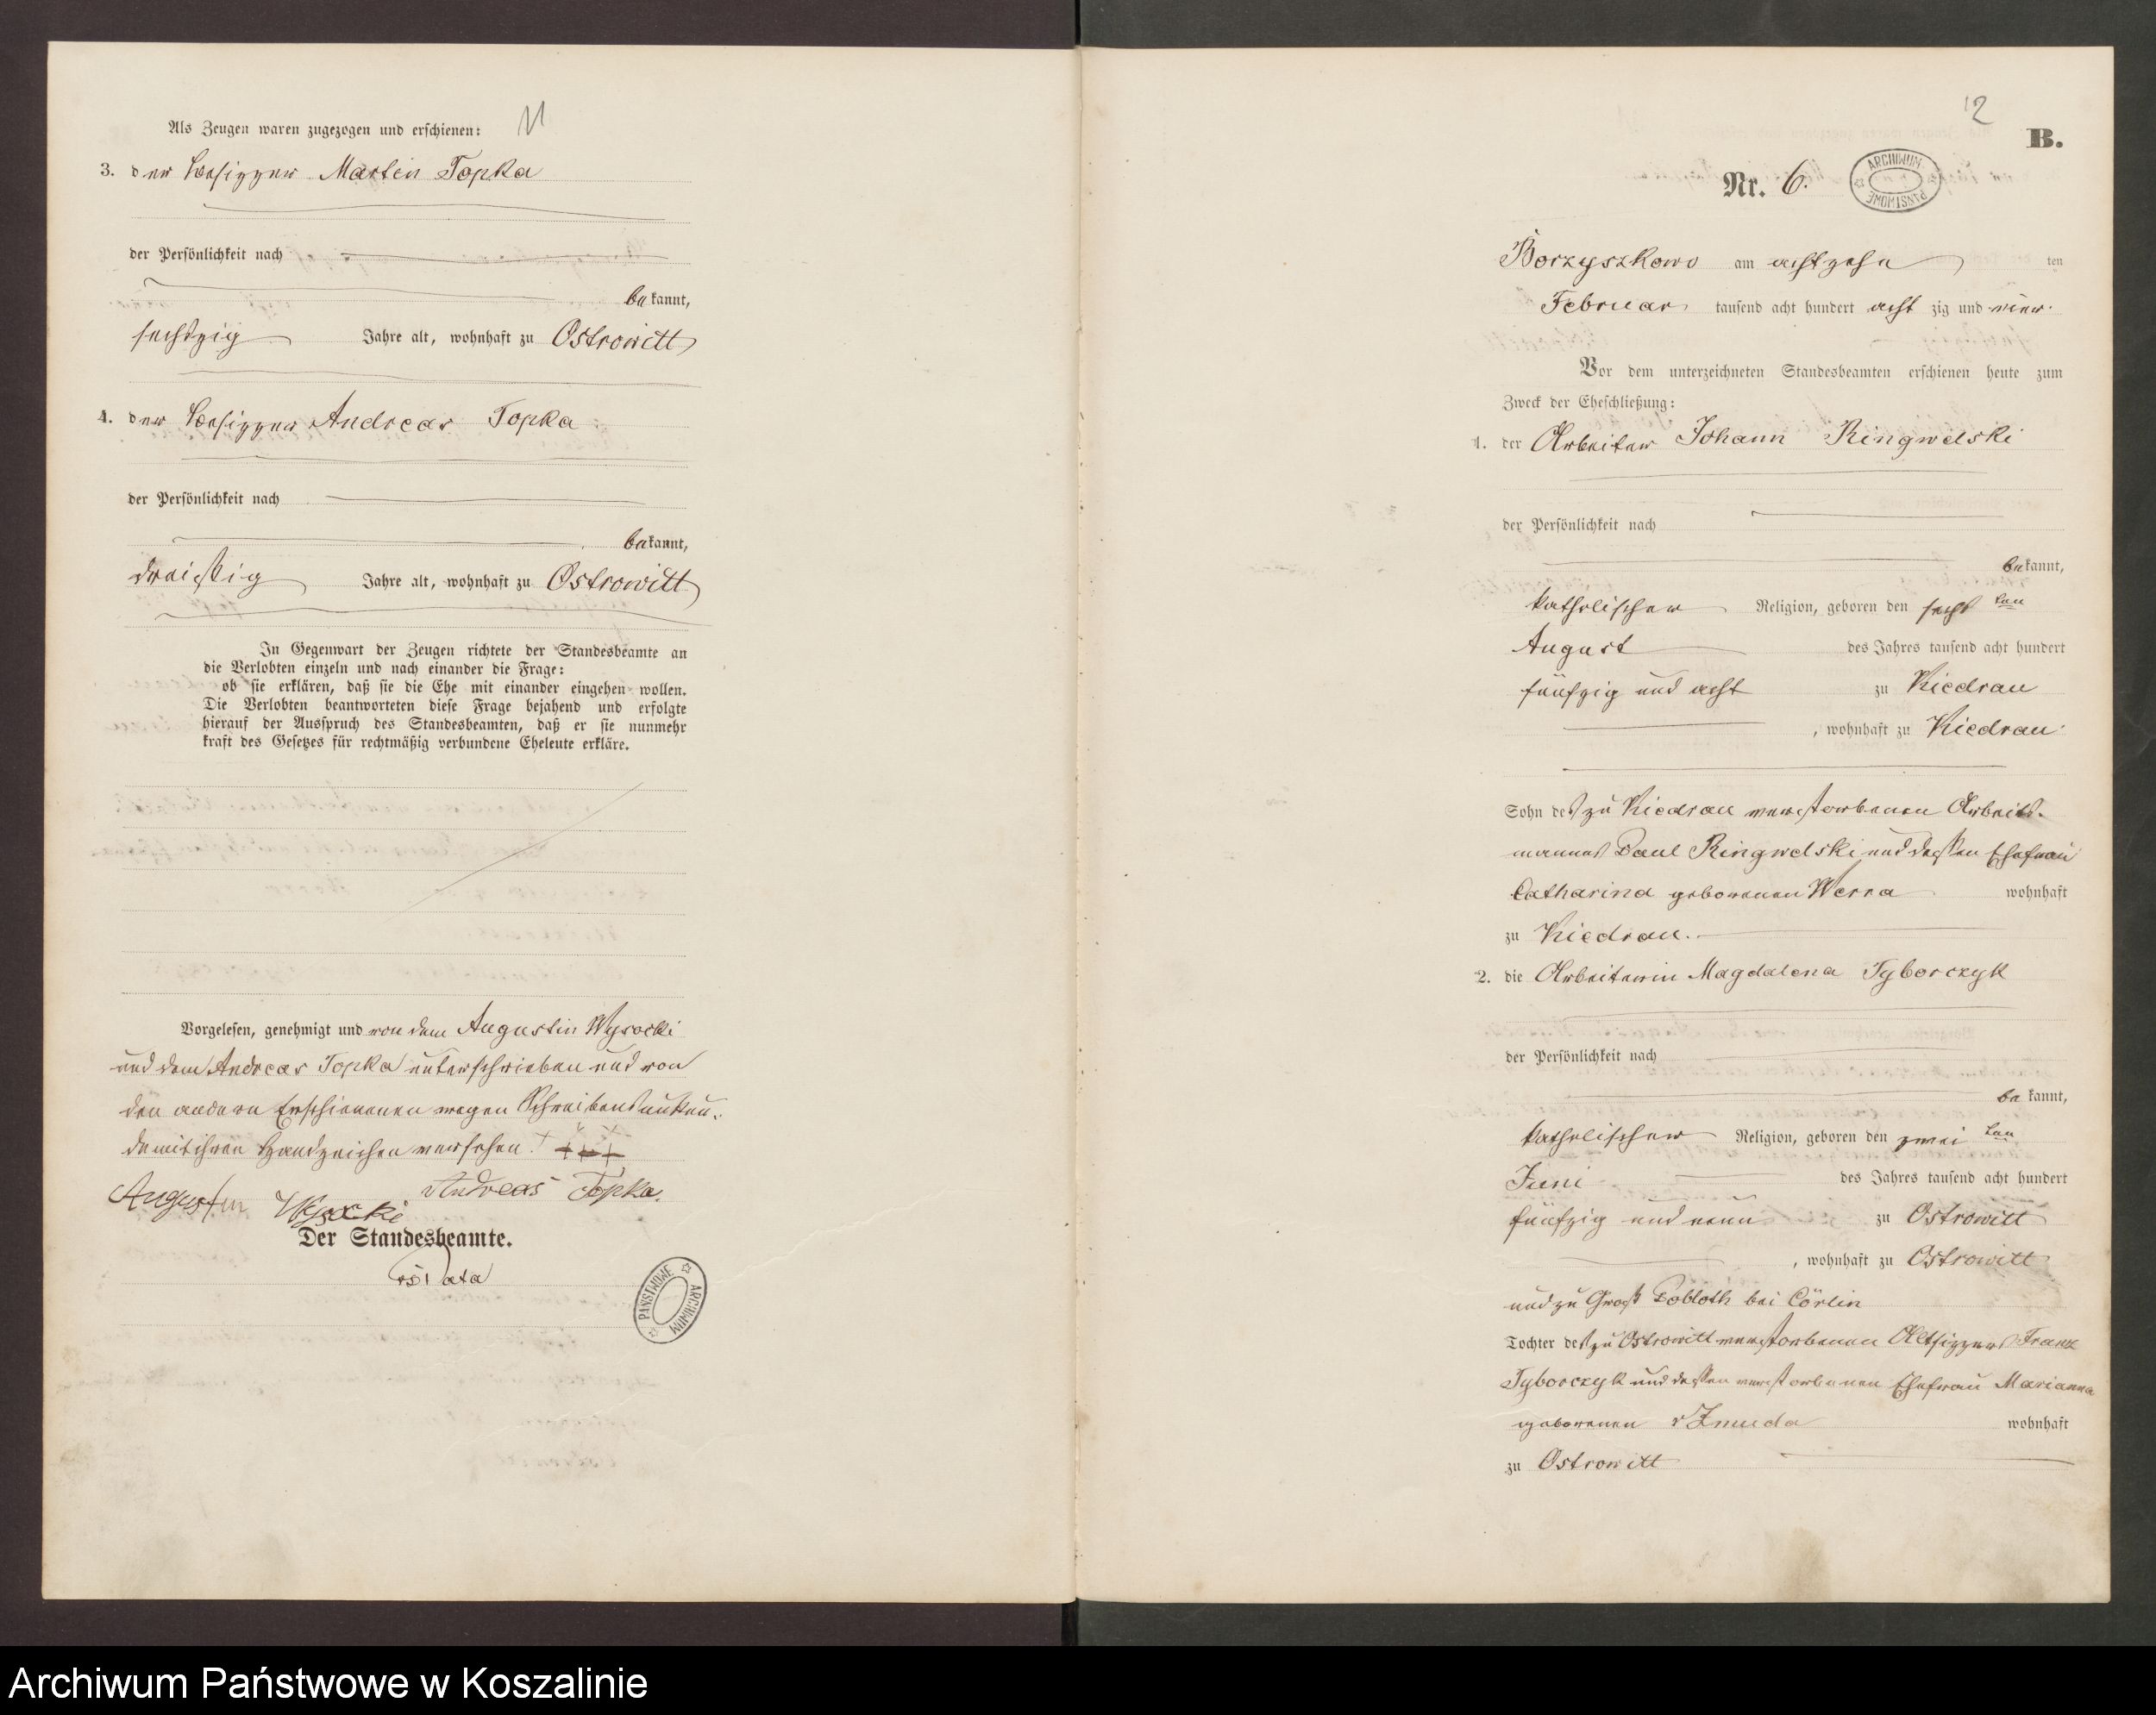 11
Als Zeugen waren zugezogen und erschienen:
3. der Besitzer Martin Topka
der Persönlichkeit nach
bekannt,
sechszig Jahre alt, wohnhaft zu Ostrowitt
4. der Besitzer Andreas Topka
der Persönlichkeit nach
bekannt,
dreißig Jahre alt, wohnhaft zu Ostrowitt
In Gegenwart der Zeugen richtete der Standesbeamte an
die Verlobten einzeln und nach einander die Frage:
ob sie erklären, daß sie die Ehe mit einander eingehen wollen.
Die Verlobten beantworteten diese Frage bejahend und erfolgte
hierauf der Ausspruch des Standesbeamten, daß er sie nunmehr
kraft des Gesetzes für rechtmäßig verbundene Eheleute erkläre.
Vorgelesen, genehmigt und von dem Augustin Wysocki
und dem Andreas Topka unterschrieben und von
den andern Erschienenen wegen Schreibensunkun-
de mit ihren Handzeichen versehen. +++
Andreas Topka.
Augustin Wysocki
Der Standesbeamte.
ARCHIWUM PAŃSTWOWE
12
B.
Nr. 6.
ARCHIWUM PAŃSTWOWE
Borzyszkowo am achtzehn ten
Februar tausend acht hundert acht zig und vier.
Vor dem unterzeichneten Standesbeamten erschienen heute zum
Zweck der Eheschließung:
1. der Arbeiter Johann Ringwelski
der Persönlichkeit nach
bekannt,
katholischer Religion, geboren den sechs ten
August des Jahres tausend acht hundert
fünfzig und acht zu Kiedrau
, wohnhaft zu Kiedrau
Sohn des zu Kiedrau verstorbenen Arbeits-
mannes Paul Ringwelski und dessen Ehefrau
Catharina geborenen Werra wohnhaft
zu Kiedrau.
2. die Arbeiterin Magdalena Tyborczyk
der Persönlichkeit nach
bekannt,
katholischer Religion, geboren den zwei ten
Juni des Jahres tausend acht hundert
fünfzig und neun zu Ostrowitt
, wohnhaft zu Ostrowitt
und zu Groß Pobloth bei Cörlin
Tochter des zu Ostrowitt verstorbenen Altsitzers Franz
Tyborczyk und dessen verstorbenen Ehefrau Marianna
geborenen Zmuda wohnhaft
zu Ostrowitt
Archiwum Państwowe w Koszalinie